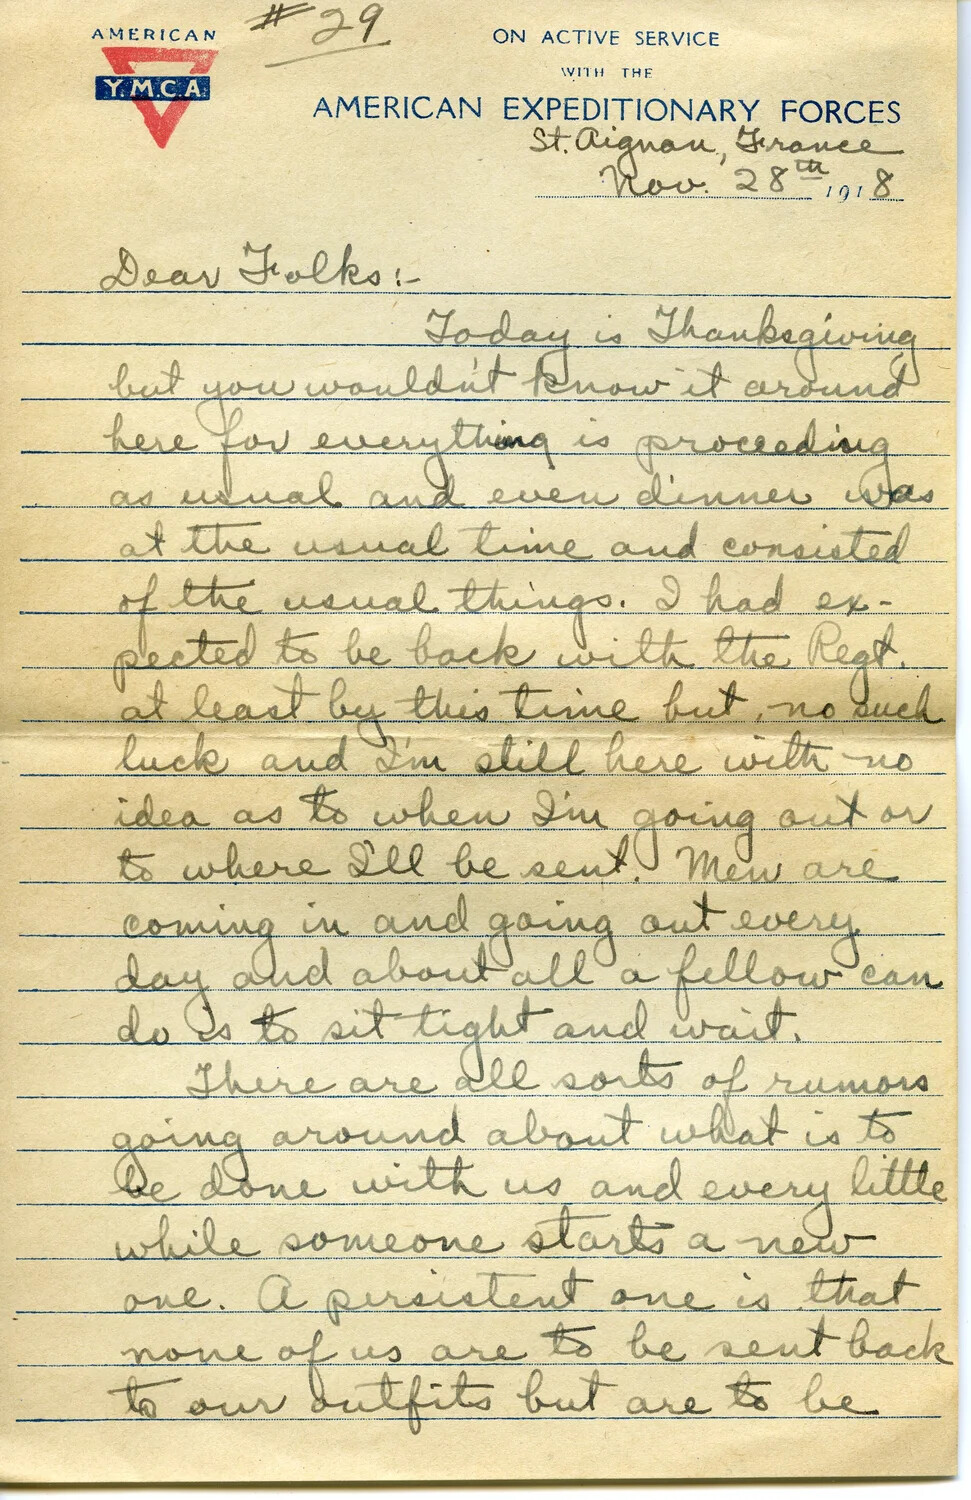 # 29
AMERICAN
Y.M.C.A.
ON ACTIVE SERVICE
WITH THE
AMERICAN EXPEDITIONARY FORCES
St. Aignan, France
Nov. 28th 1918
Dear Folks:-
Today is Thanksgiving
but you wouldn't know it around
here for everything is proceeding
as usual and even dinner was
at the usual time and consisted
of the usual things. I had ex-
pected to be back with the Regt.
at least by this time but, no such
luck and I'm still here with no
idea as to when I'm going out or
to where I'll be sent. Men are
coming in and going out every
day and about all a fellow can
do is to sit tight and wait.
There are all sorts of rumors
going around about what is to
be done with us and every little
while someone starts a new
one. A persistent one is that
none of us are to be sent back
to our outfits but are to be